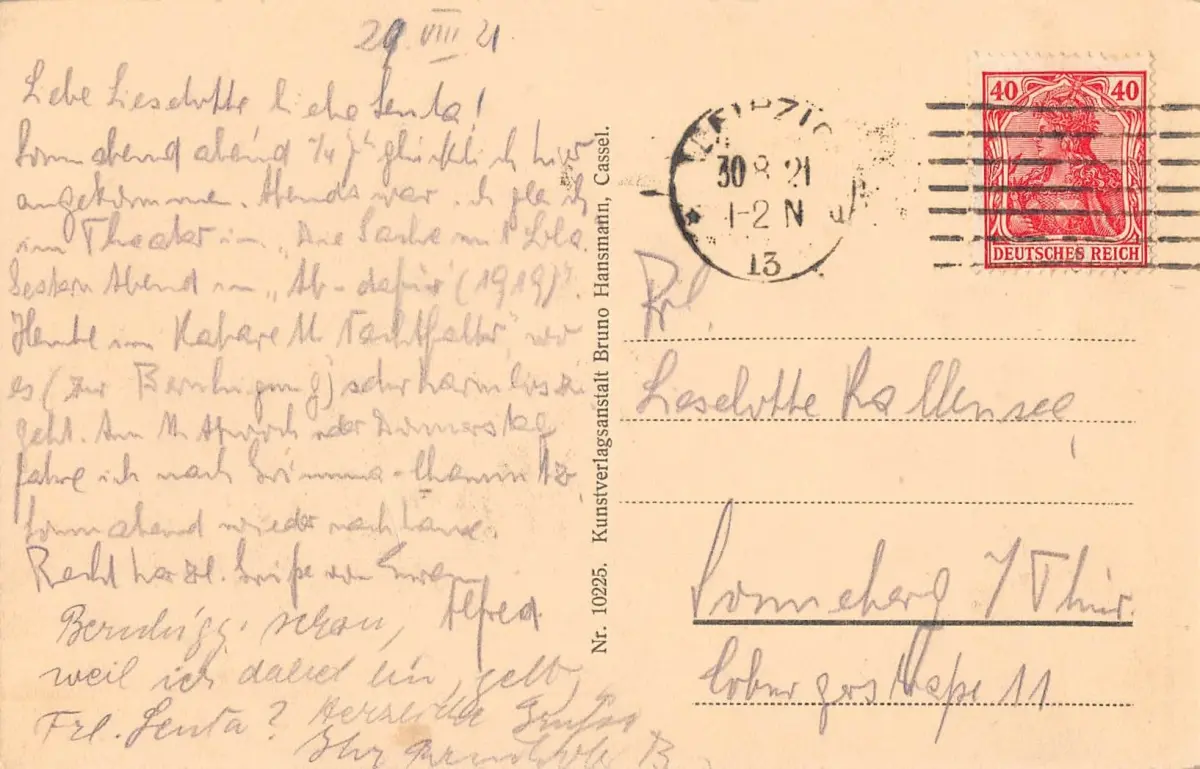 29 VIII 21.
Liebe Lieselotte liebe Senta!
Sonnabend abend glücklich hier
angekommen. Abends war ich gleich
im Theater in „Die Sache mit Lola
Gestern Abend in (1919)“.
Heute im Kabarett Nachtfalter, wo
es (zur Beruhigung) sehr harmlos zu
geht. Am Mittwoch oder Donnerstag
fahre ich nach Grimma-Chemnitz,
Sonnabend wieder nach Hause.
Recht herzl. Grüße von Eurem
Alfred
schon,
weil ich dabei bin, gelt,
Frl. Senta? Herzliche Grüße
Ihr B.
Nr. 10225. Kunstverlagsanstalt Bruno Hansmann, Cassel.
LEIPZIG
30 8 21
1-2 N
13
40 40
DEUTSCHES REICH
Frl.
Lieselotte Kallensee,
Sonneberg / Thür.
Coburgerstraße 11